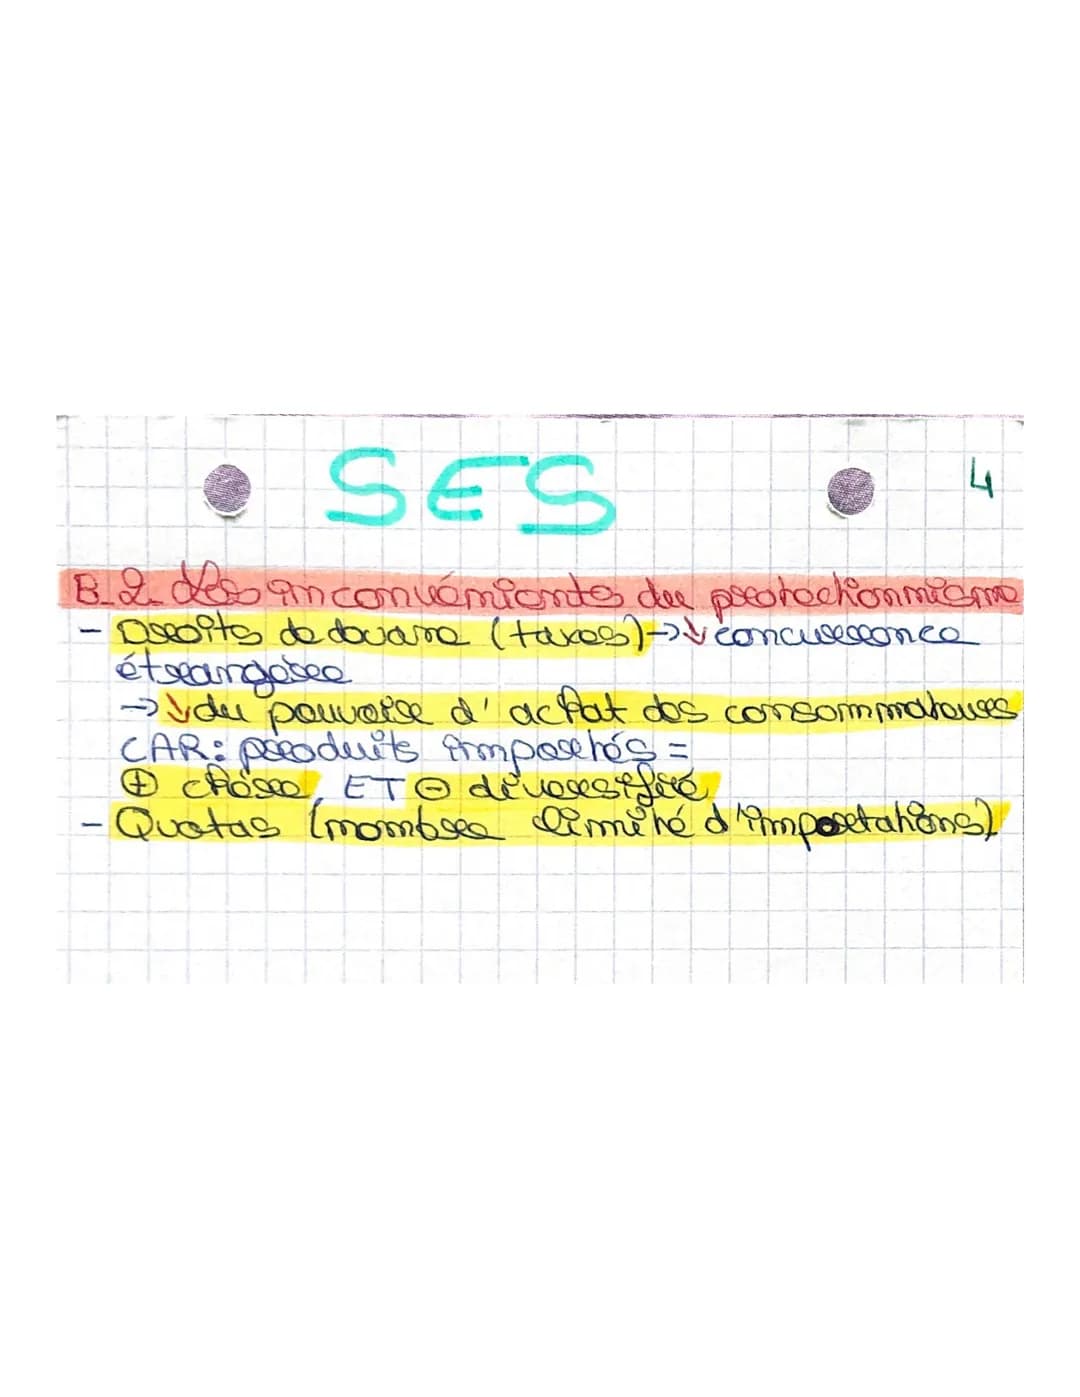 SES
4
B.2. Les inconvénients du protectionnisme
- Droits de douane (taxes) → ↓ concurrence
étrangère
→ ↓ du pouvoir d'achat des consommateurs
CAR : produits importés =
⊕ chère, ET ⊖ diversifié
- Quotas (nombre limité d'importations)